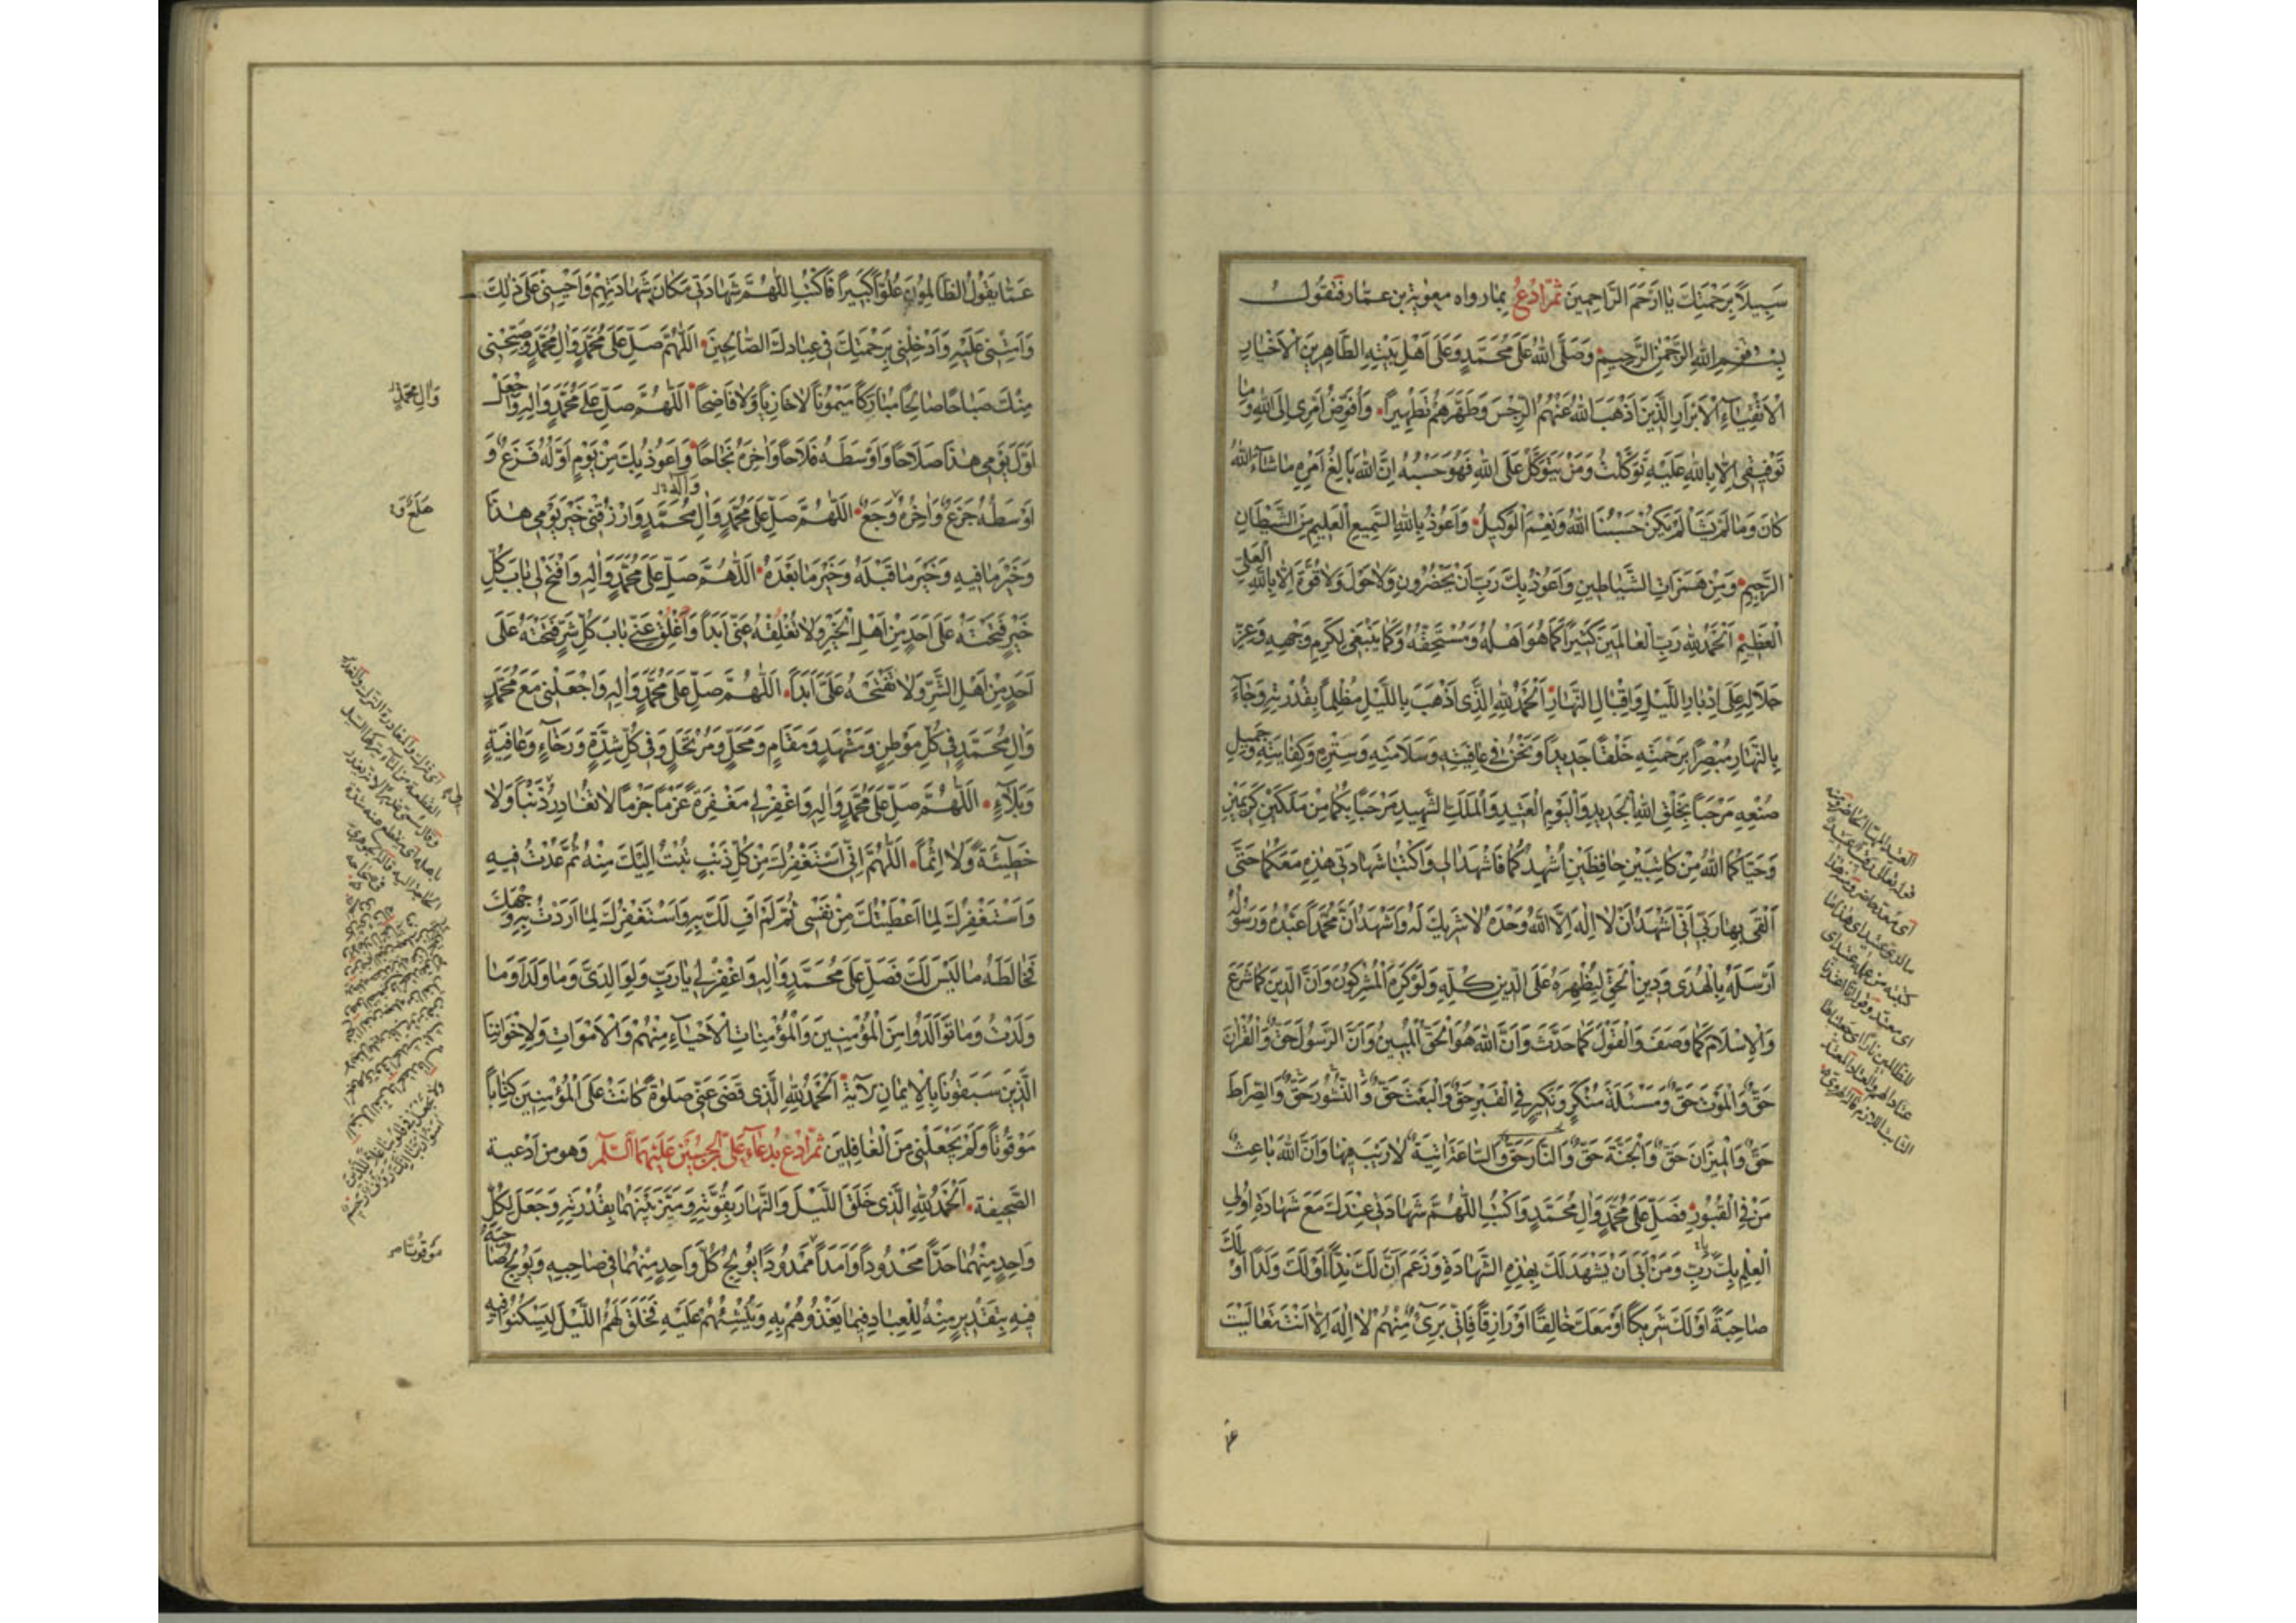 سَبِيلاً بِرَحْمَتِكَ يَا اَرْحَمَ الرَّاحِمِينَ ثُمَّ ادْعُ بما رواه معوية بن عمار فتقول
بِسْمِ اللهِ الرَّحْمٰنِ الرَّحِيمِ وَصَلَّى اللهُ عَلَى مُحَمَّدٍ وَعَلَى اَهْلِ بَيْتِهِ الطَّاهِرِينَ الْاَخْيَارِ
الْاَتْقِيَاءِ الْاَبْرَارِ الَّذِينَ اَذْهَبَ اللهُ عَنْهُمُ الرِّجْسَ وَطَهَّرَهُمْ تَطْهِيراً وَاُفَوِّضُ اَمْرِى اِلَى اللهِ وَمَا
تَوْفِيقِى اِلَّا بِاللهِ عَلَيْهِ تَوَكَّلْتُ وَمَنْ يَتَوَكَّلْ عَلَى اللهِ فَهُوَ حَسْبُهُ اِنَّ اللهَ بَالِغُ اَمْرِهِ مَا شَاءَ اللهُ
كَانَ وَمَا لَمْ يَشَأْ لَمْ يَكُنْ حَسْبُنَا اللهُ وَنِعْمَ الْوَكِيلُ وَاَعُوذُ بِاللهِ السَّمِيعِ الْعَلِيمِ مِنَ الشَّيْطَانِ
الرَّجِيمِ وَمِنْ هَمَزَاتِ الشَّيَاطِينِ وَاَعُوذُ بِكَ رَبِّ اَنْ يَحْضُرُونِ وَلَا حَوْلَ وَلَا قُوَّةَ اِلَّا بِاللهِ الْعَلِىِّ
الْعَظِيمِ اَلْحَمْدُ لِلّٰهِ رَبِّ الْعَالَمِينَ كَثِيراً كَمَا هُوَ اَهْلُهُ وَمُسْتَحِقُّهُ وَكَمَا يَنْبَغِى لِكَرَمِ وَجْهِهِ وَعِزِّ
جَلَالِهِ عَلَى اِدْبَارِ اللَّيْلِ وَاِقْبَالِ النَّهَارِ اَلْحَمْدُ لِلّٰهِ الَّذِى اَذْهَبَ بِاللَّيْلِ مُظْلِماً بِقُدْرَتِهِ وَجَاءَ
بِالنَّهَارِ مُبْصِراً بِرَحْمَتِهِ خَلْقاً جَدِيداً وَنَحْنُ فِى عَافِيَتِهِ وَسَلَامَتِهِ وَسَتْرِهِ وَكِفَايَتِهِ وَجَمِيلِ
صُنْعِهِ مَرْحَباً بِخَلْقِ اللهِ الْجَدِيدِ وَالْيَوْمِ الْعَتِيدِ وَالْمَلَكِ الشَّهِيدِ مَرْحَباً بِكُمَا مِنْ مَلَكَيْنِ كَرِيمَيْنِ
وَحَيَّاكُمَا اللهُ مِنْ كَاتِبَيْنِ حَافِظَيْنِ اُشْهِدُكُمَا فَاشْهَدَا لِى وَاكْتُبَا شَهَادَتِى هٰذِهِ مَعَكُمَا حَتَّى
اَلْقَى بِهَا رَبِّى اَنِّى اَشْهَدُ اَنْ لَا اِلٰهَ اِلَّا اللهُ وَحْدَهُ لَا شَرِيكَ لَهُ وَاَشْهَدُ اَنَّ مُحَمَّداً عَبْدُهُ وَرَسُولُهُ
اَرْسَلَهُ بِالْهُدَى وَدِينِ الْحَقِّ لِيُظْهِرَهُ عَلَى الدِّينِ كُلِّهِ وَلَوْ كَرِهَ الْمُشْرِكُونَ وَاَنَّ الدِّينَ كَمَا شَرَعَ
وَالْاِسْلَامَ كَمَا وَصَفَ وَالْقَوْلَ كَمَا حَدَّثَ وَاَنَّ اللهَ هُوَ الْحَقُّ الْمُبِينُ وَاَنَّ الرَّسُولَ حَقٌّ وَالْقُرْاٰنَ
حَقٌّ وَالْمَوْتَ حَقٌّ وَمَسْئَلَةَ مُنْكَرٍ وَنَكِيرٍ فِى الْقَبْرِ حَقٌّ وَالْبَعْثَ حَقٌّ وَالنُّشُورَ حَقٌّ وَالصِّرَاطَ
حَقٌّ وَالْمِيزَانَ حَقٌّ وَالْجَنَّةَ حَقٌّ وَالنَّارَ حَقٌّ وَالسَّاعَةَ اٰتِيَةٌ لَا رَيْبَ فِيهَا وَاَنَّ اللهَ بَاعِثُ
مَنْ فِى الْقُبُورِ فَصَلِّ عَلَى مُحَمَّدٍ وَاٰلِ مُحَمَّدٍ وَاكْتُبِ اللّٰهُمَّ شَهَادَتِى عِنْدَكَ مَعَ شَهَادَةِ اُولِى
الْعِلْمِ بِكَ يَا رَبِّ وَمَنْ اَبَى اَنْ يَشْهَدَ لَكَ بِهٰذِهِ الشَّهَادَةِ وَزَعَمَ اَنَّ لَكَ نِدّاً اَوْ لَكَ وَلَداً اَوْ لَكَ
صَاحِبَةً اَوْ لَكَ شَرِيكاً اَوْ مَعَكَ خَالِقاً اَوْ رَازِقاً فَاِنِّى بَرِىءٌ مِنْهُمْ لَا اِلٰهَ اِلَّا اَنْتَ تَعَالَيْتَ
عَمَّا يَقُولُ الظَّالِمُونَ عُلُوّاً كَبِيراً فَاكْتُبِ اللّٰهُمَّ شَهَادَتِى مَكَانَ شَهَادَتِهِمْ وَاَحْيِنِى عَلَى ذٰلِكَ
وَاَمِتْنِى عَلَيْهِ وَاَدْخِلْنِى بِرَحْمَتِكَ فِى عِبَادِكَ الصَّالِحِينَ اَللّٰهُمَّ صَلِّ عَلَى مُحَمَّدٍ وَاٰلِ مُحَمَّدٍ وَصَبِّحْنِى
مِنْكَ صَبَاحاً صَالِحاً مُبَارَكاً مَيْمُوناً لَا خَازِياً وَلَا فَاضِحاً اَللّٰهُمَّ صَلِّ عَلَى مُحَمَّدٍ وَاٰلِهِ وَاجْعَلْ
وَاٰلِ مُحَمَّدٍ
اَوَّلَ يَوْمِى هٰذَا صَلَاحاً وَاَوْسَطَهُ فَلَاحاً وَاٰخِرَهُ نَجَاحاً وَاَعُوذُ بِكَ مِنْ يَوْمٍ اَوَّلُهُ فَزَعٌ وَ
اَوْسَطُهُ جَزَعٌ وَاٰخِرُهُ وَجَعٌ اَللّٰهُمَّ صَلِّ عَلَى مُحَمَّدٍ وَاٰلِ مُحَمَّدٍ وَارْزُقْنِى خَيْرَ يَوْمِى هٰذَا
هَلَعٌ
وَخَيْرَ مَا فِيهِ وَخَيْرَ مَا قَبْلَهُ وَخَيْرَ مَا بَعْدَهُ اَللّٰهُمَّ صَلِّ عَلَى مُحَمَّدٍ وَاٰلِهِ وَافْتَحْ لِى بَابَ كُلِّ
خَيْرٍ فَتَحْتَهُ عَلَى اَحَدٍ مِنْ اَهْلِ الْخَيْرِ وَلَا تُغْلِقْهُ عَنِّى اَبَداً وَاَغْلِقْ عَنِّى بَابَ كُلِّ شَرٍّ فَتَحْتَهُ عَلَى
اَحَدٍ مِنْ اَهْلِ الشَّرِّ وَلَا تَفْتَحْهُ عَلَىَّ اَبَداً اَللّٰهُمَّ صَلِّ عَلَى مُحَمَّدٍ وَاٰلِهِ وَاجْعَلْنِى مَعَ مُحَمَّدٍ
وَاٰلِ مُحَمَّدٍ فِى كُلِّ مَوْطِنٍ وَمَشْهَدٍ وَمَقَامٍ وَمَحَلٍّ وَمُرْتَحَلٍ وَفِى كُلِّ شِدَّةٍ وَرَخَاءٍ وَعَافِيَةٍ
وَبَلَاءٍ اَللّٰهُمَّ صَلِّ عَلَى مُحَمَّدٍ وَاٰلِهِ وَاغْفِرْ لِى مَغْفِرَةً عَزْماً جَزْماً لَا تُغَادِرُ ذَنْباً وَلَا
خَطِيئَةً وَلَا اِثْماً اَللّٰهُمَّ اِنِّى اَسْتَغْفِرُكَ مِنْ كُلِّ ذَنْبٍ تُبْتُ اِلَيْكَ مِنْهُ ثُمَّ عُدْتُ فِيهِ
وَاَسْتَغْفِرُكَ لِمَا اَعْطَيْتُكَ مِنْ نَفْسِى ثُمَّ لَمْ اَفِ لَكَ بِهِ وَاَسْتَغْفِرُكَ لِمَا اَرَدْتُ بِهِ وَجْهَكَ
فَخَالَطَهُ مَا لَيْسَ لَكَ فَصَلِّ عَلَى مُحَمَّدٍ وَاٰلِهِ وَاغْفِرْ لِى يَا رَبِّ وَلِوَالِدَىَّ وَمَا وَلَدَا وَمَا
وَلَدْتُ وَمَا تَوَالَدُوا مِنَ الْمُؤْمِنِينَ وَالْمُؤْمِنَاتِ الْاَحْيَاءِ مِنْهُمْ وَالْاَمْوَاتِ وَلِاِخْوَانِنَا
الَّذِينَ سَبَقُونَا بِالْاِيمَانِ لآية اَلْحَمْدُ لِلّٰهِ الَّذِى قَضَى عَنِّى صَلٰوةً كَانَتْ عَلَى الْمُؤْمِنِينَ كِتَاباً
مَوْقُوتاً وَلَمْ يَجْعَلْنِى مِنَ الْغَافِلِينَ ثُمَّ ادْعُ بِدُعَاءِ عَلِىِّ بْنِ الْحُسَيْنِ عَلَيْهِمَا السَّلَام وهو من ادعية
الصَّحِيفة اَلْحَمْدُ لِلّٰهِ الَّذِى خَلَقَ اللَّيْلَ وَالنَّهَارَ بِقُوَّتِهِ وَمَيَّزَ بَيْنَهُمَا بِقُدْرَتِهِ وَجَعَلَ لِكُلِّ
وَاحِدٍ مِنْهُمَا حَدّاً مَحْدُوداً وَاَمَداً مَمْدُوداً يُولِجُ كُلَّ وَاحِدٍ مِنْهُمَا فِى صَاحِبِهِ وَيُولِجُ صَاحِبَهُ
مَوْقُوتاً
فِيهِ بِتَقْدِيرٍ مِنْهُ لِلْعِبَادِ فِيمَا يَغْذُوهُمْ بِهِ وَيُنْشِئُهُمْ عَلَيْهِ فَخَلَقَ لَهُمُ اللَّيْلَ لِيَسْكُنُوا فِيهِ